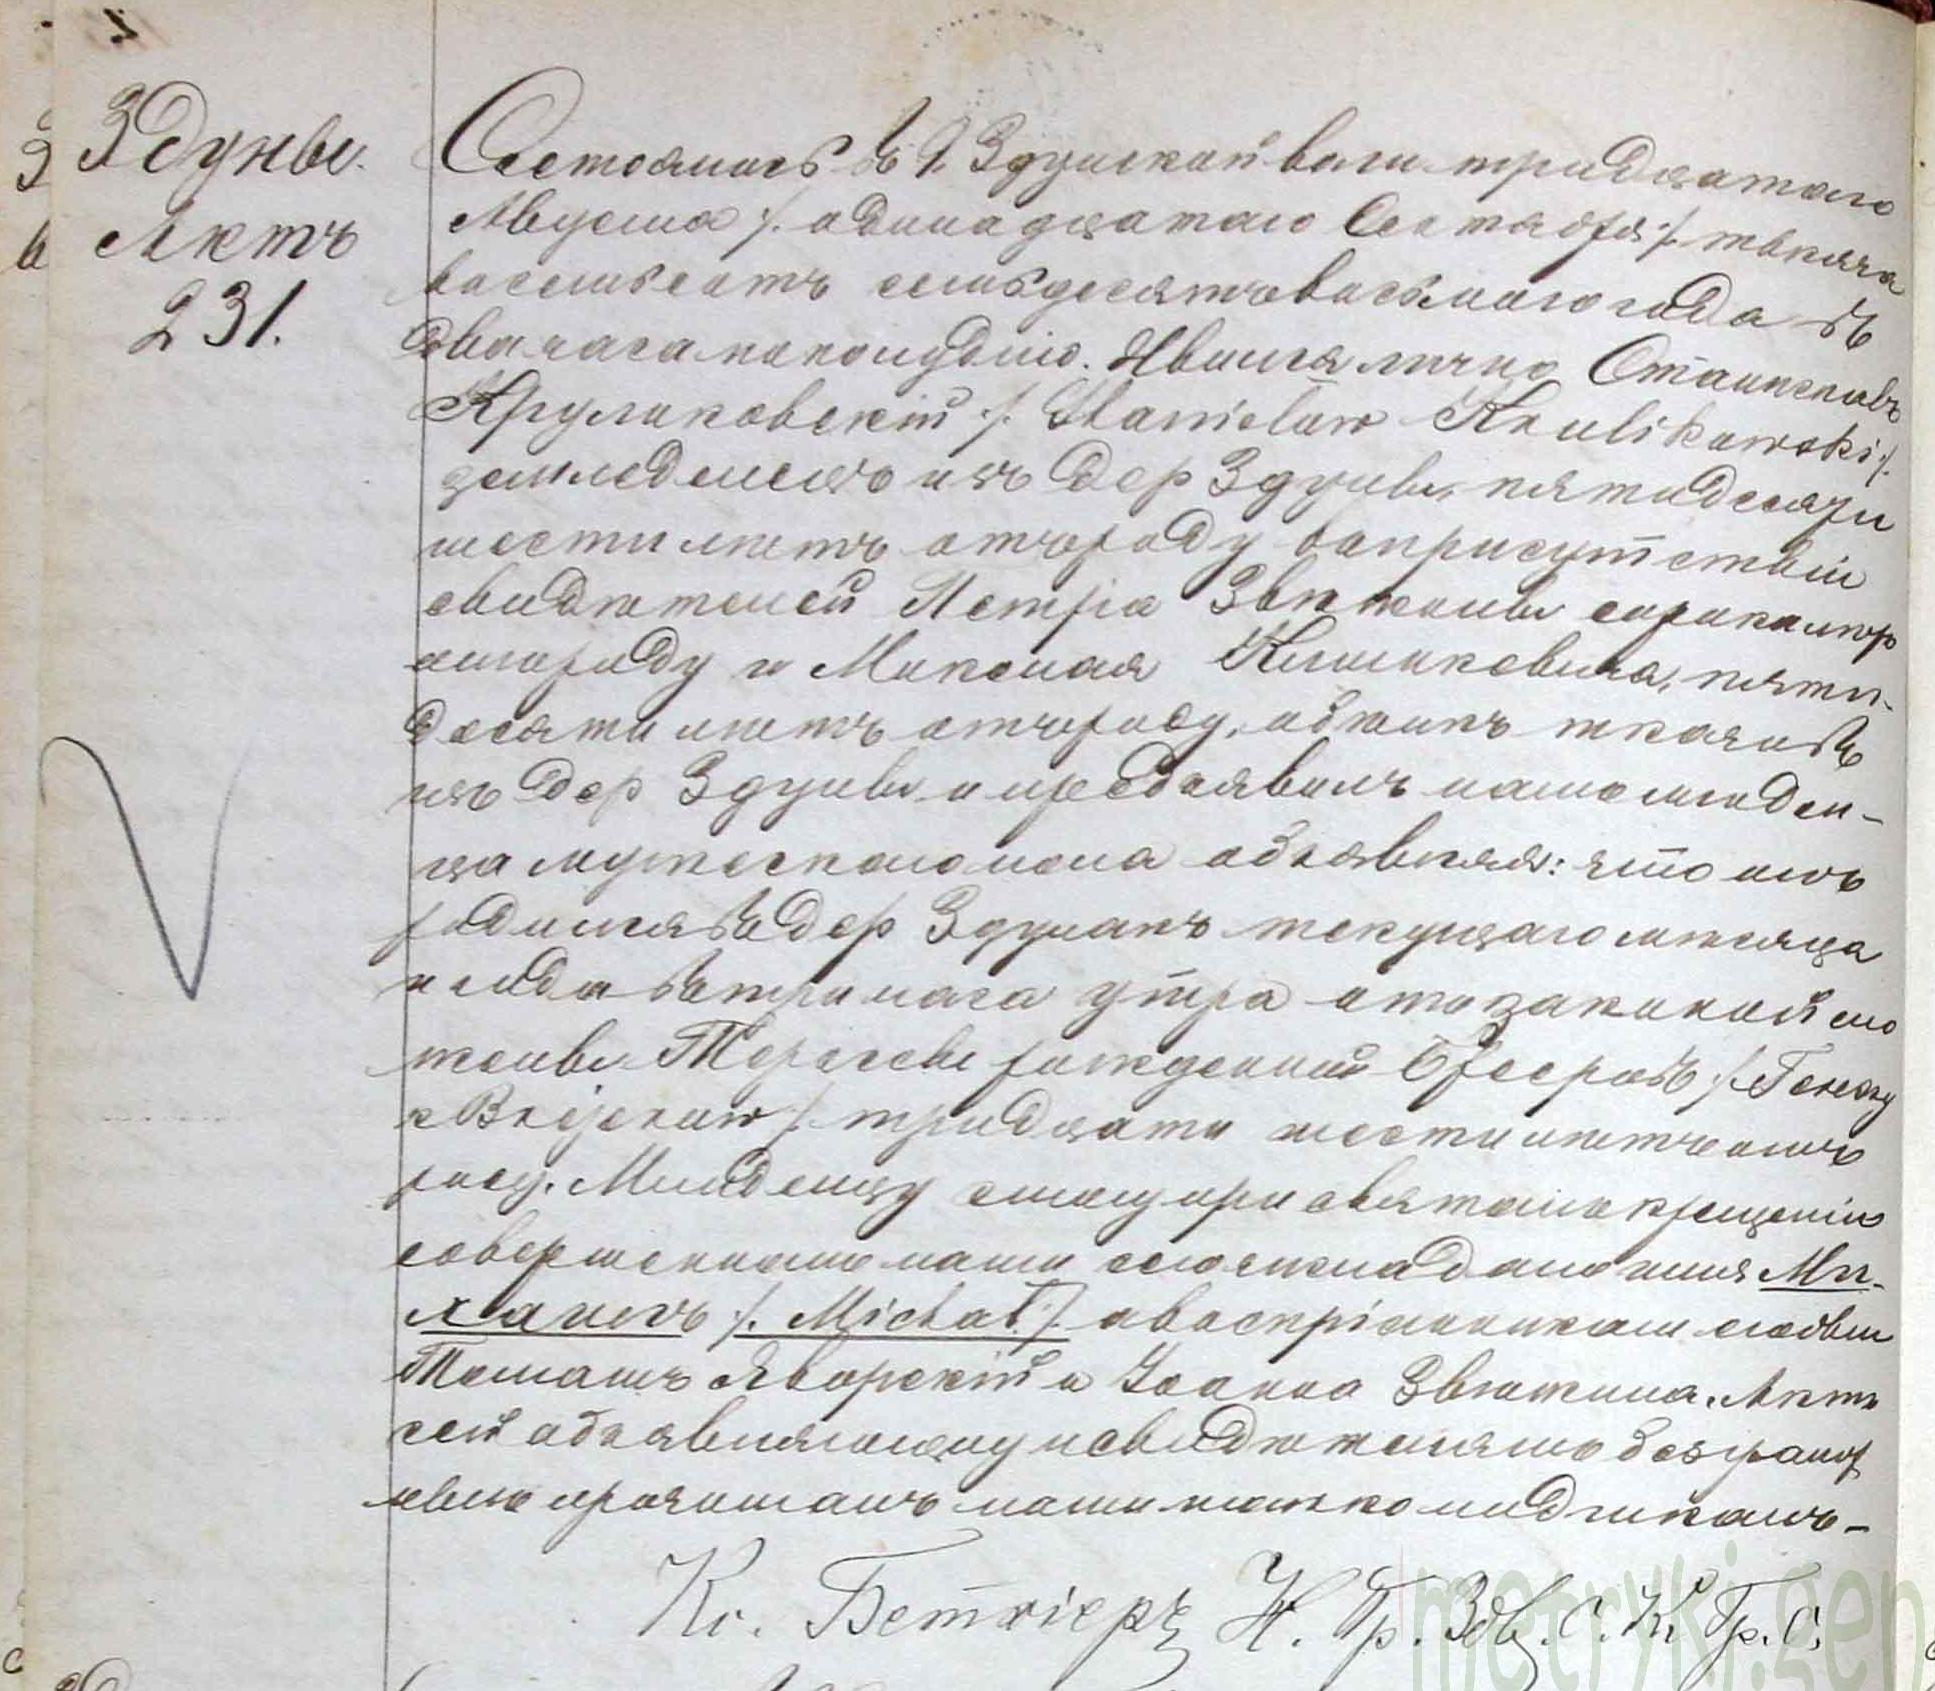 Здуны.
Актъ
231.
Состоялось въ г. Здунской воли тридцатаго
Августа /. одинадцатаго Сентября ./ тысяча
восемьсотъ семьдесятъ восьмого года въ
два часа пополудни. Явился лично Станиславъ
Круликовскій /. Stanisław Krulikowski ./
земледелецъ изъ дер Здуны, пятидесяти
шести летъ отъ роду въ присутствіи
свидетелей Петра сорока летъ
отъ роду и Миколая пяти-
десяти летъ отъ роду, обоихъ ткачовъ
изъ дер Здуны и предъявилъ намъ младен-
ца мужескаго пола объявляя: что онъ
родился въ дер Здунахъ текущаго месяца
и года въ три часа утра отъ законной его
жены рожденной
тридцати шести летъ отъ
роду. Младенцу сему при святомъ крещеніи
совершенномъ нами сего числа дано имя Ми-
хаилъ /. Michał ./ а воспріемниками были
Томашъ Яворскій и Іоанна Актъ
сей объявляющему и свидетелямъ безграмот
нымъ прочитанъ нами только подписанъ-
Кс. Н. Пр. Здв. С. К. Гр. С.
metryki.gen